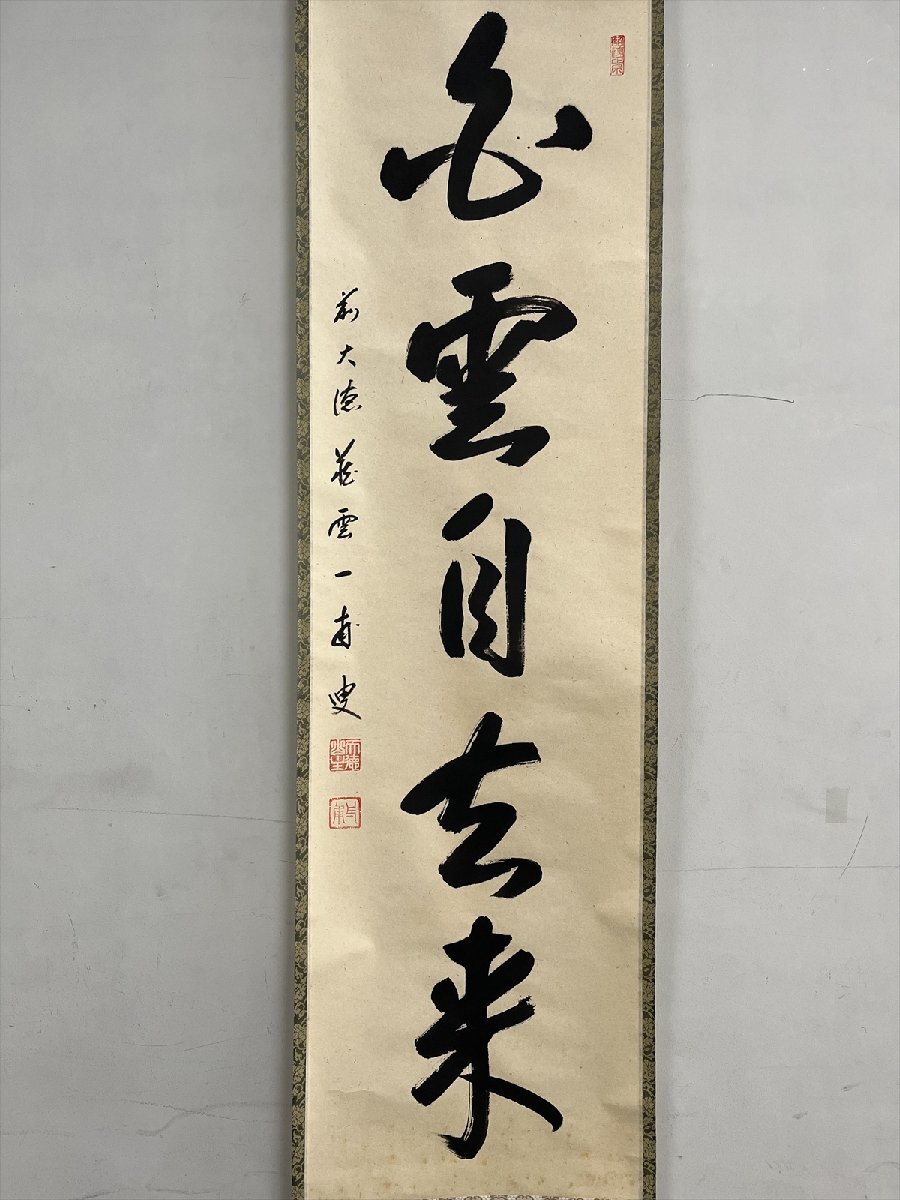 白雲自去来
前大徳藏雲一甫叟